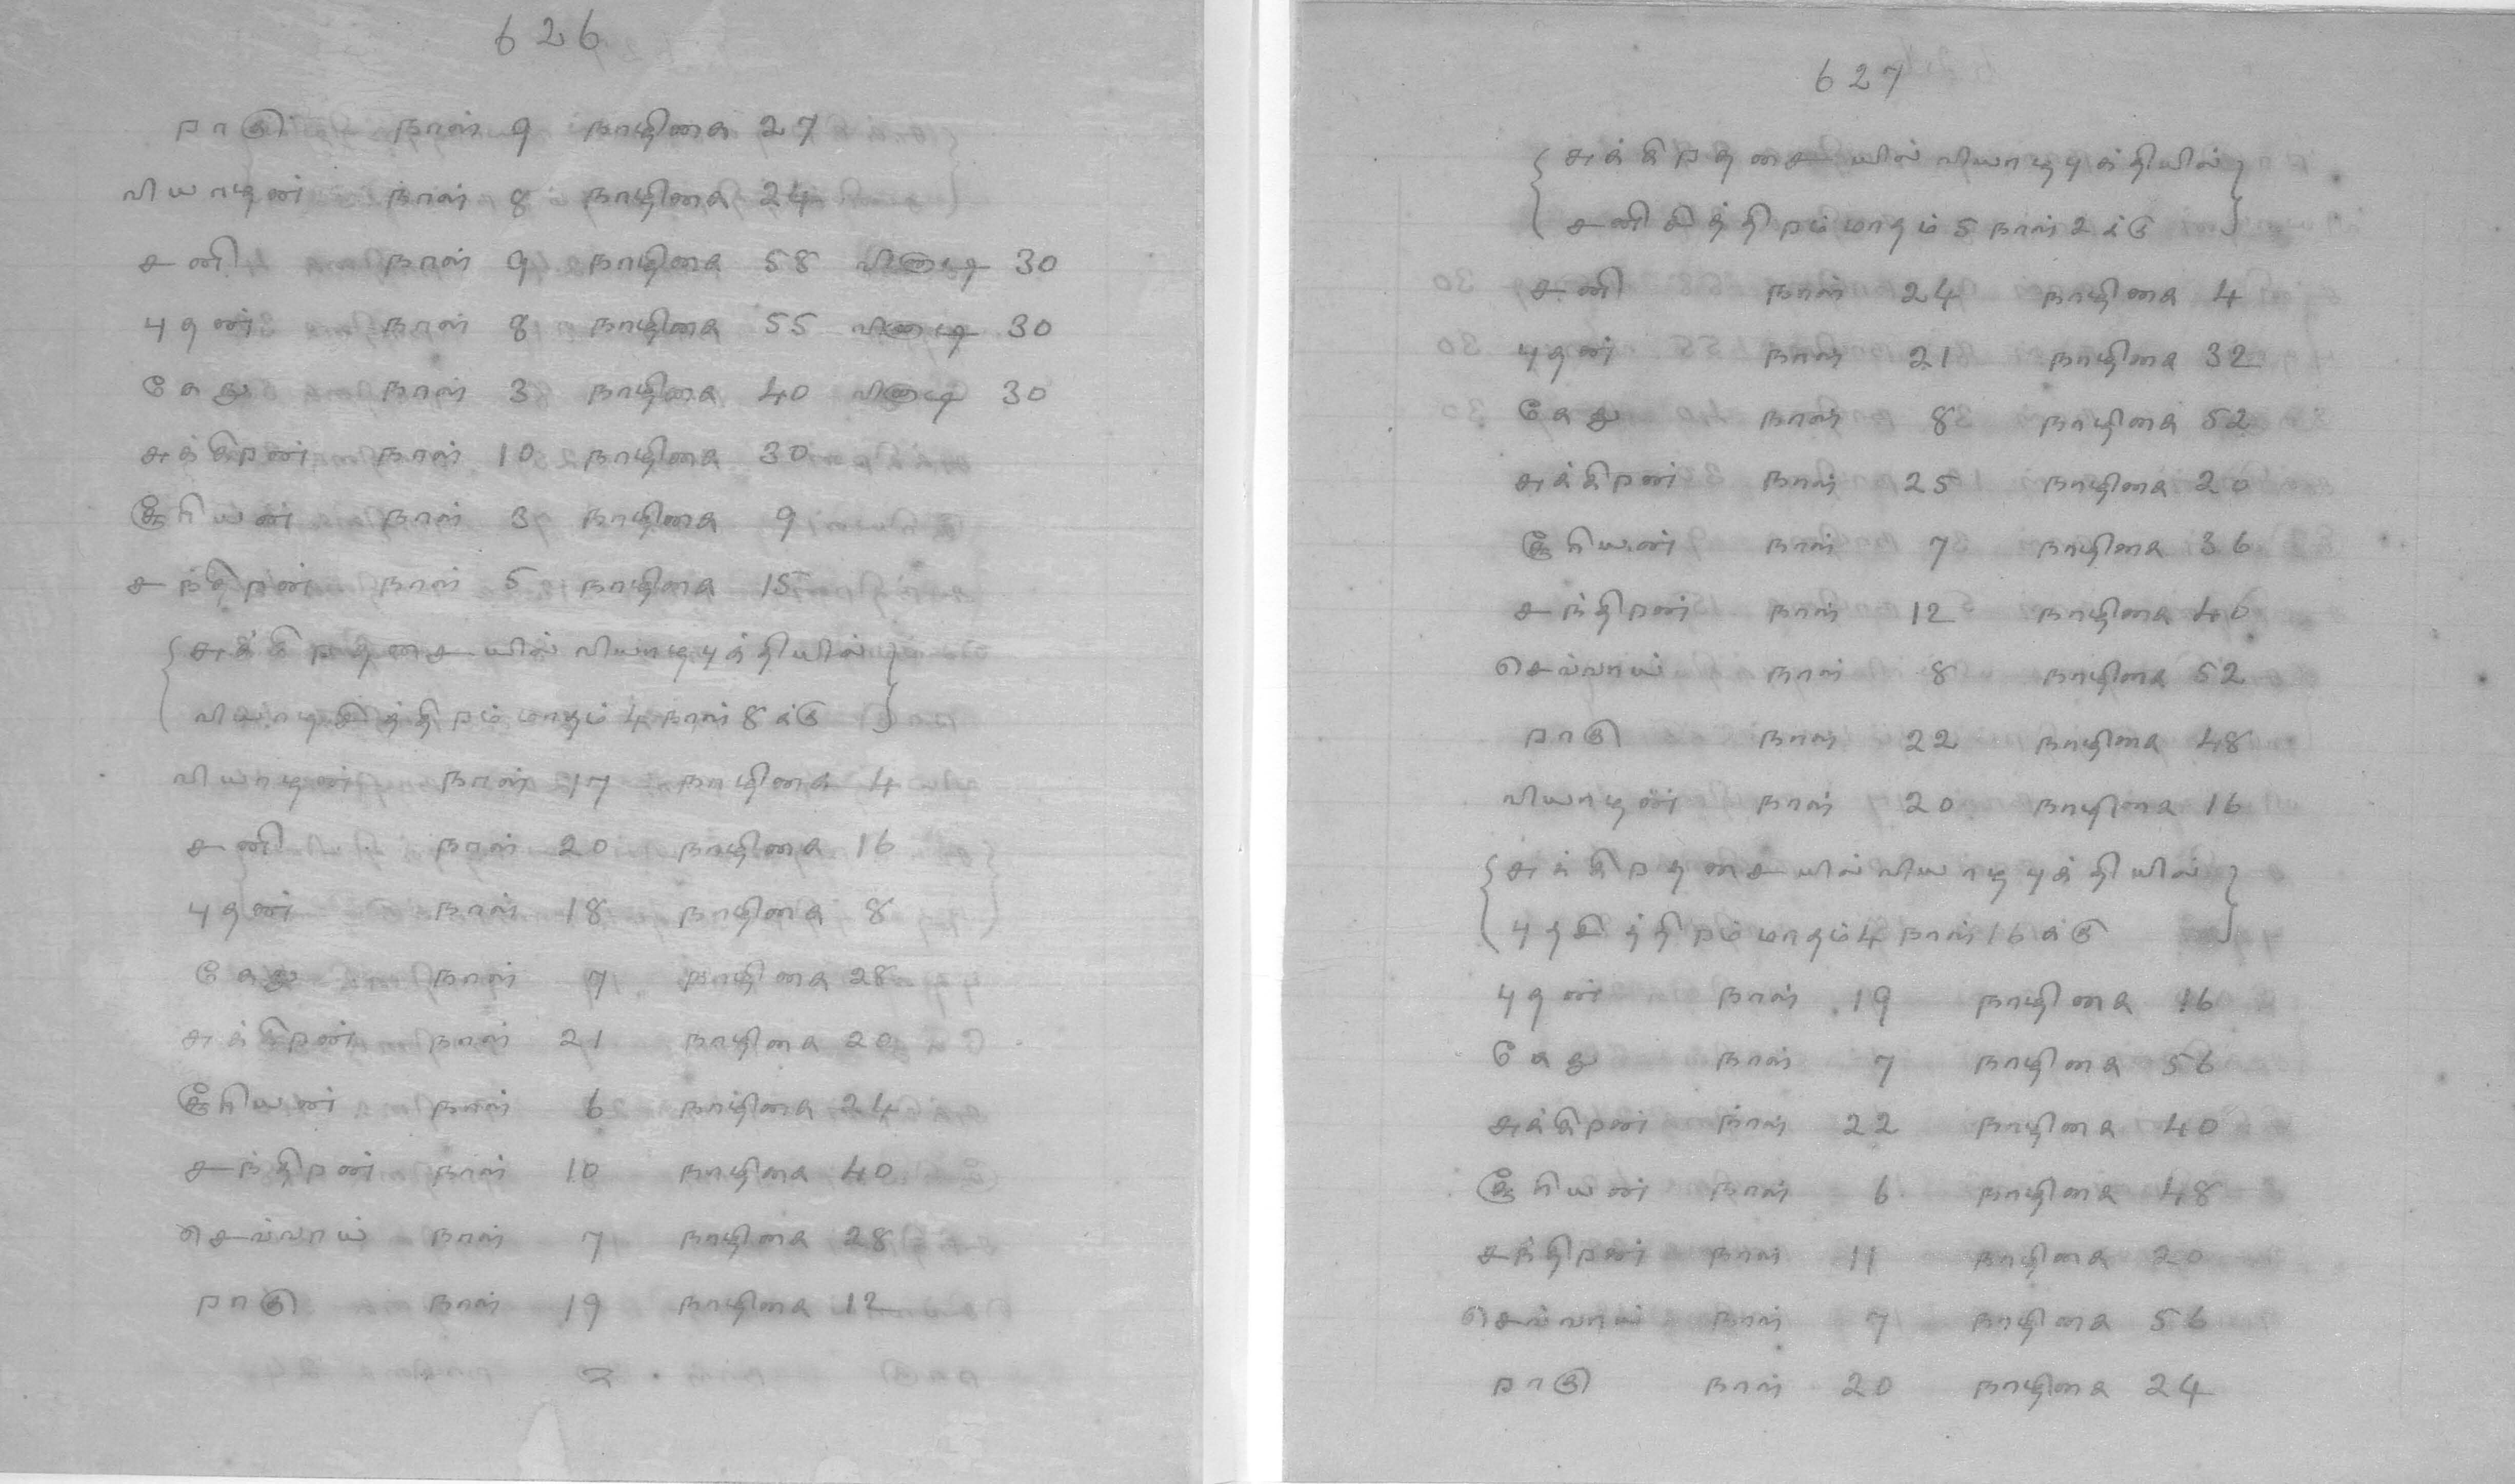 626
ராகு நாள் 9 நாழிகை 27
வியாழன் நாள் 8 நாழிகை 24
சனி நாள் 9 நாழிகை 58 வினாடி 30
புதன் நாள் 8 நாழிகை 55 வினாடி 30
கேது நாள் 3 நாழிகை 40 வினாடி 30
சுக்கிரன் நாள் 10 நாழிகை 30
சூரியன் நாள் 3 நாழிகை 9
சந்திரன் நாள் 5 நாழிகை 15
{ சுக்கிரதசையில் வியாழபுக்தியில் }
{ வியாழசித்திரம் மாதம் 4 நாள் 8 க்கு }
வியாழன் நாள் 17 நாழிகை 4
சனி நாள் 20 நாழிகை 16
புதன் நாள் 18 நாழிகை 8
கேது நாள் 7 நாழிகை 28
சுக்கிரன் நாள் 21 நாழிகை 20
சூரியன் நாள் 6 நாழிகை 24
சந்திரன் நாள் 10 நாழிகை 40
செவ்வாய் நாள் 7 நாழிகை 28
ராகு நாள் 19 நாழிகை 12
627
{ சுக்கிரதசையில் வியாழபுக்தியில் }
{ சனிசித்திரம் மாதம் 5 நாள் 2 க்கு }
சனி நாள் 24 நாழிகை 4
புதன் நாள் 21 நாழிகை 32
கேது நாள் 8 நாழிகை 52
சுக்கிரன் நாள் 25 நாழிகை 20
சூரியன் நாள் 7 நாழிகை 36
சந்திரன் நாள் 12 நாழிகை 40
செவ்வாய் நாள் 8 நாழிகை 52
ராகு நாள் 22 நாழிகை 48
வியாழன் நாள் 20 நாழிகை 16
{ சுக்கிரதசையில் வியாழபுக்தியில் }
{ புதசித்திரம் மாதம் 4 நாள் 16 க்கு }
புதன் நாள் 19 நாழிகை 16
கேது நாள் 7 நாழிகை 56
சுக்கிரன் நாள் 22 நாழிகை 40
சூரியன் நாள் 6 நாழிகை 48
சந்திரன் நாள் 11 நாழிகை 20
செவ்வாய் நாள் 7 நாழிகை 56
ராகு நாள் 20 நாழிகை 24